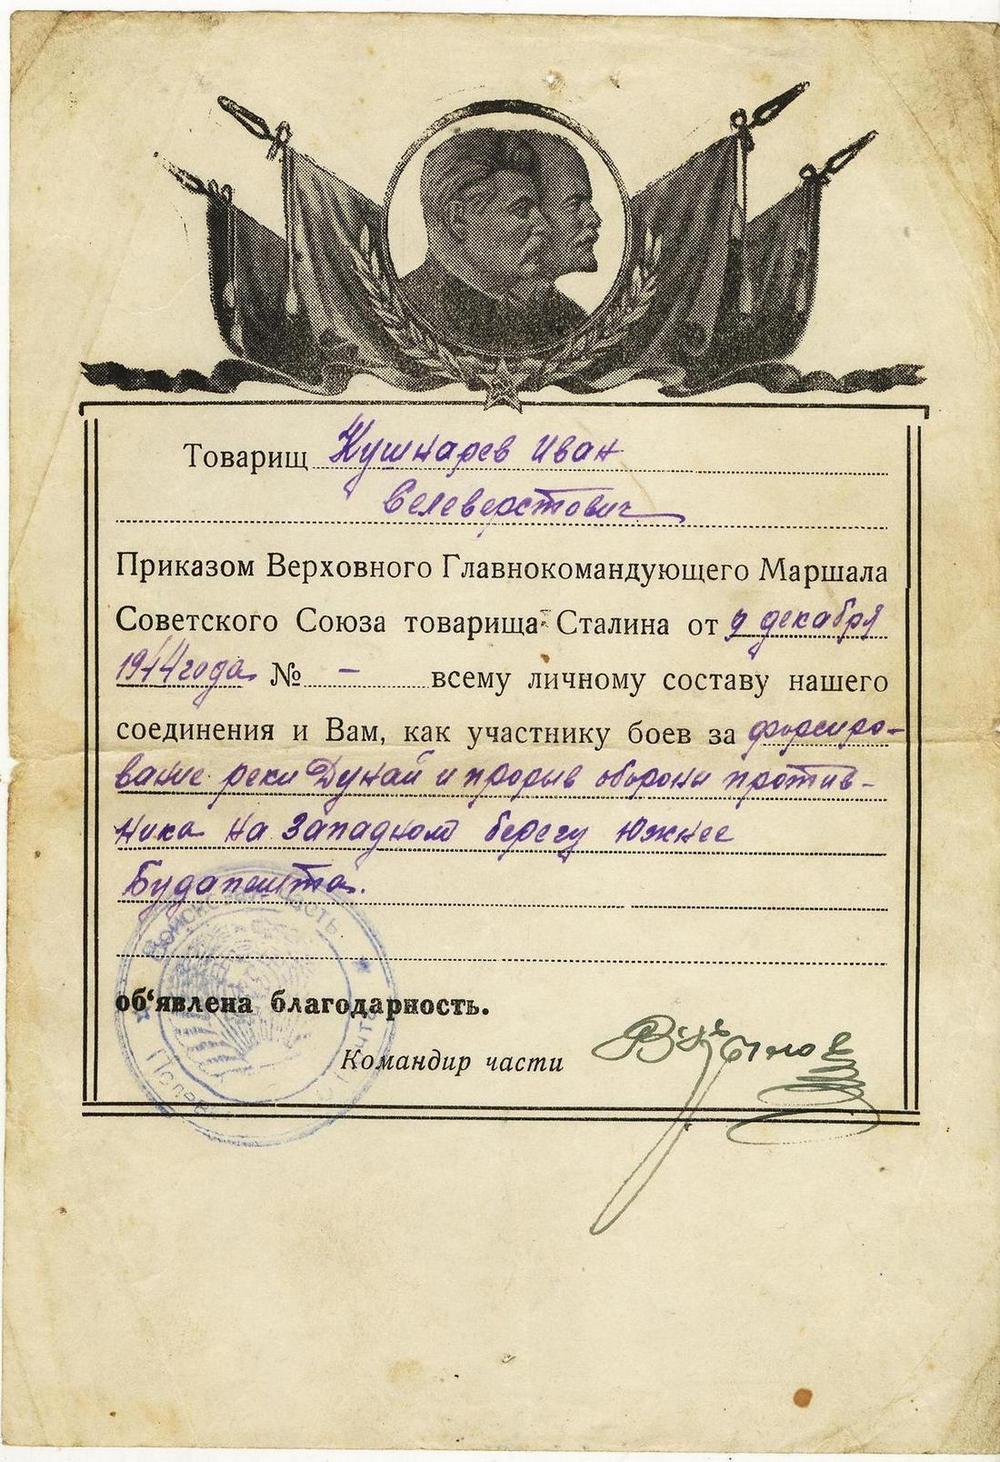 Товарищ Кушнарев Иван
Селеверстович
Приказом Верховного Главнокомандующего Маршала
Советского Союза товарища Сталина от 9 декабря
1944 года № – всему личному составу нашего
соединения и Вам, как участнику боев за форсиро-
вание реки Дунай и прорыв обороны против-
ника на западном берегу южнее
Будапешта.
об‘явлена благодарность.
Командир части